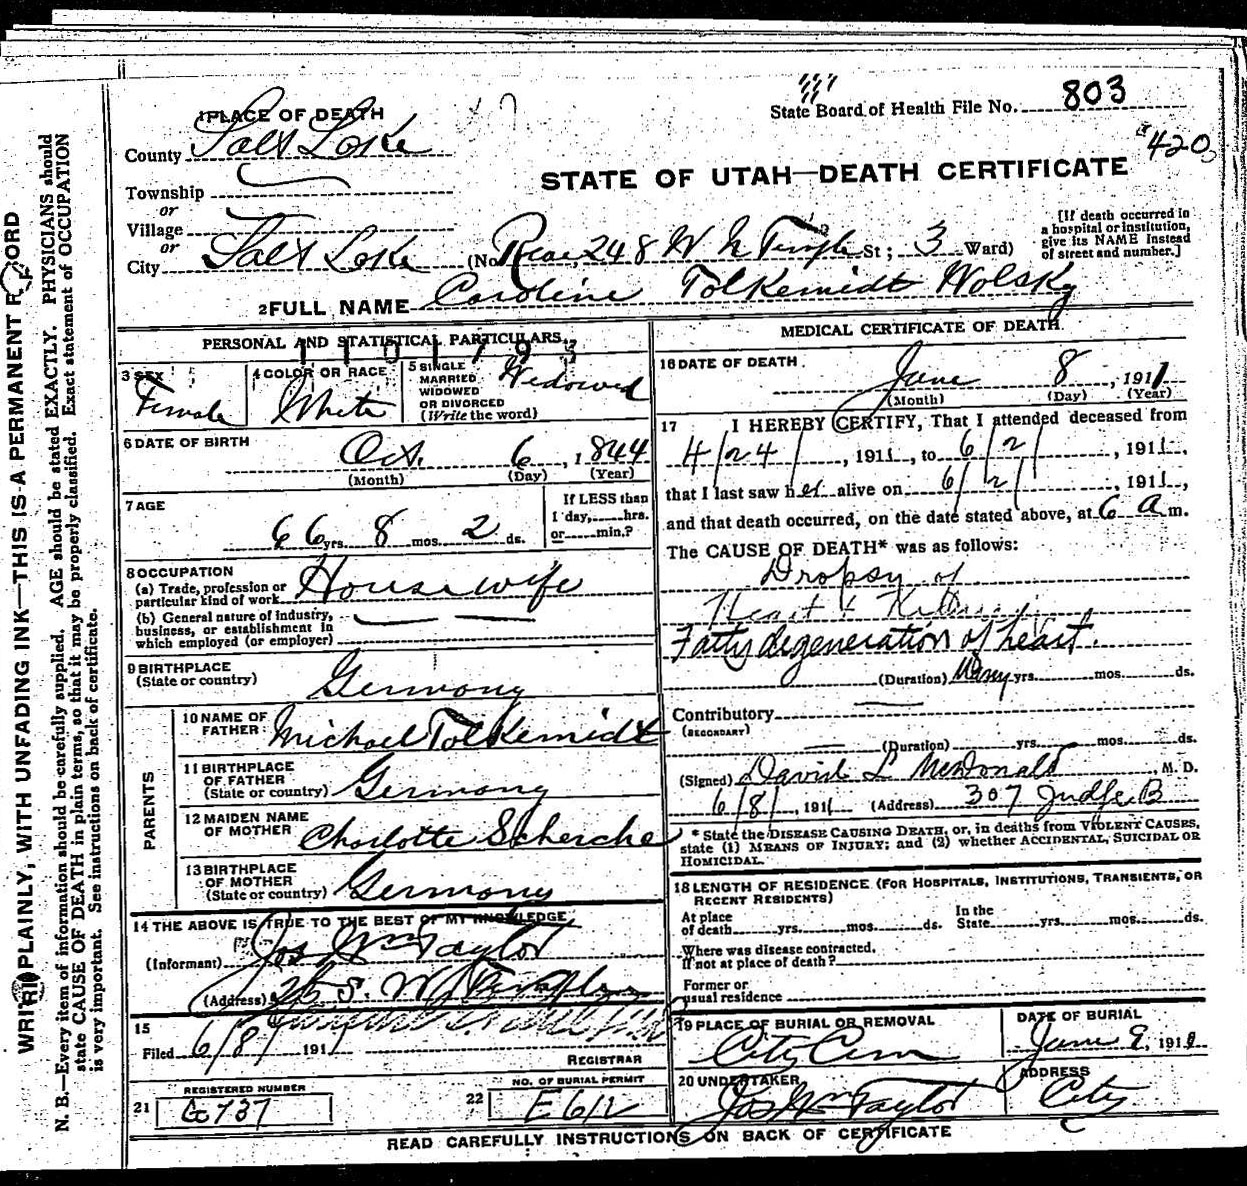 1 PLACE OF DEATH
County Salt Lake
Township
or
Village
or
City Salt Lake (No. Rear 248 W N Temple St; 3 Ward)
State Board of Health File No. 803
420
STATE OF UTAH—DEATH CERTIFICATE
[If death occurred in a hospital or institution, give its NAME instead of street and number.]
2 FULL NAME Caroline Tolkemidt Wolsky
PERSONAL AND STATISTICAL PARTICULARS
1101793
3 SEX Female
4 COLOR OR RACE White
5 SINGLE MARRIED WIDOWED OR DIVORCED (Write the word) Widowed
6 DATE OF BIRTH
Oct. 6, 1844
(Month) (Day) (Year)
7 AGE
66 yrs. 8 mos. 2 ds.
If LESS than 1 day,......hrs. or......min.?
8 OCCUPATION
(a) Trade, profession or particular kind of work Housewife
(b) General nature of industry, business, or establishment in which employed (or employer)
9 BIRTHPLACE
(State or country) Germany
PARENTS
10 NAME OF FATHER Michael Tolkemidt
11 BIRTHPLACE OF FATHER (State or country) Germany
12 MAIDEN NAME OF MOTHER Charlotte Scherche
13 BIRTHPLACE OF MOTHER (State or country) Germany
14 THE ABOVE IS TRUE TO THE BEST OF MY KNOWLEDGE
(Informant) Jos Wm Taylor
(Address) 25 S. W Temple
15
Filed 6/8/ 1911
REGISTRAR
REGISTERED NUMBER
21 G737
NO. OF BURIAL PERMIT
22 E612
MEDICAL CERTIFICATE OF DEATH
16 DATE OF DEATH
June 8, 1911
(Month) (Day) (Year)
17 I HEREBY CERTIFY, That I attended deceased from
4/24/, 1911, to 6/2/, 1911,
that I last saw her alive on 6/2/, 1911,
and that death occurred, on the date stated above, at 6 a m.
The CAUSE OF DEATH* was as follows:
Dropsy of
Heart & Kidney
Fatty degeneration of heart.
(Duration) Many yrs. mos. ds.
Contributory
(SECONDARY)
(Duration) yrs. mos. ds.
(Signed) David L McDonald M. D.
6/8/, 1911 (Address) 307 Judge B
* State the DISEASE CAUSING DEATH, or, in deaths from VIOLENT CAUSES, state (1) MEANS OF INJURY; and (2) whether ACCIDENTAL, SUICIDAL OR HOMICIDAL.
18 LENGTH OF RESIDENCE (FOR HOSPITALS, INSTITUTIONS, TRANSIENTS, OR RECENT RESIDENTS)
At place of death yrs. mos. ds. In the State yrs. mos. ds.
Where was disease contracted, if not at place of death?
Former or usual residence
19 PLACE OF BURIAL OR REMOVAL City Cem
DATE OF BURIAL June 9, 1911
20 UNDERTAKER Jos Wm Taylor
ADDRESS City
READ CAREFULLY INSTRUCTIONS ON BACK OF CERTIFICATE
WRITE PLAINLY, WITH UNFADING INK—THIS IS A PERMANENT RECORD
N. B.—Every item of information should be carefully supplied. AGE should be stated EXACTLY. PHYSICIANS should
state CAUSE OF DEATH in plain terms, so that it may be properly classified. Exact statement of OCCUPATION
is very important. See instructions on back of certificate.